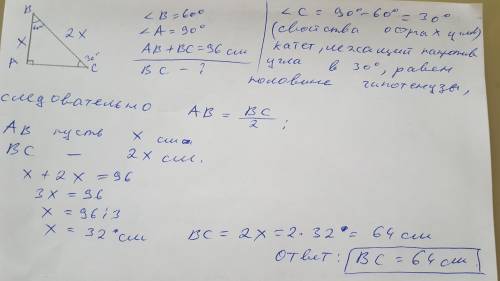 B
60°
x
2x
A
30°
C
∠B=60°
∠A=90°
AB+BC=96 см
BC - ?
∠C = 90°-60°=30°
(свойства острых углов)
катет, лежащий напротив
угла в 30°, равен
половине гипотенузы,
следовательно AB = BC/2;
AB пусть x см
BC — 2x см.
x + 2x = 96
3x = 96
x = 96:3
x = 32 см
BC = 2x = 2·32 = 64 см
Ответ: BC = 64 см